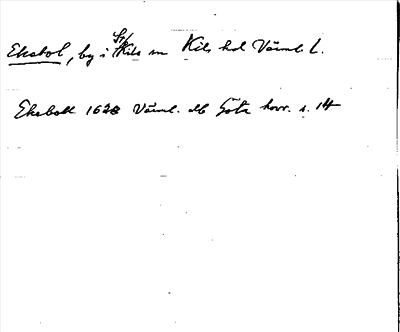 Ekebol, by i St. Kils sn Kils hd Värml. l.
Ekeboll 1628 Värml. db Göta hovr. s. 14